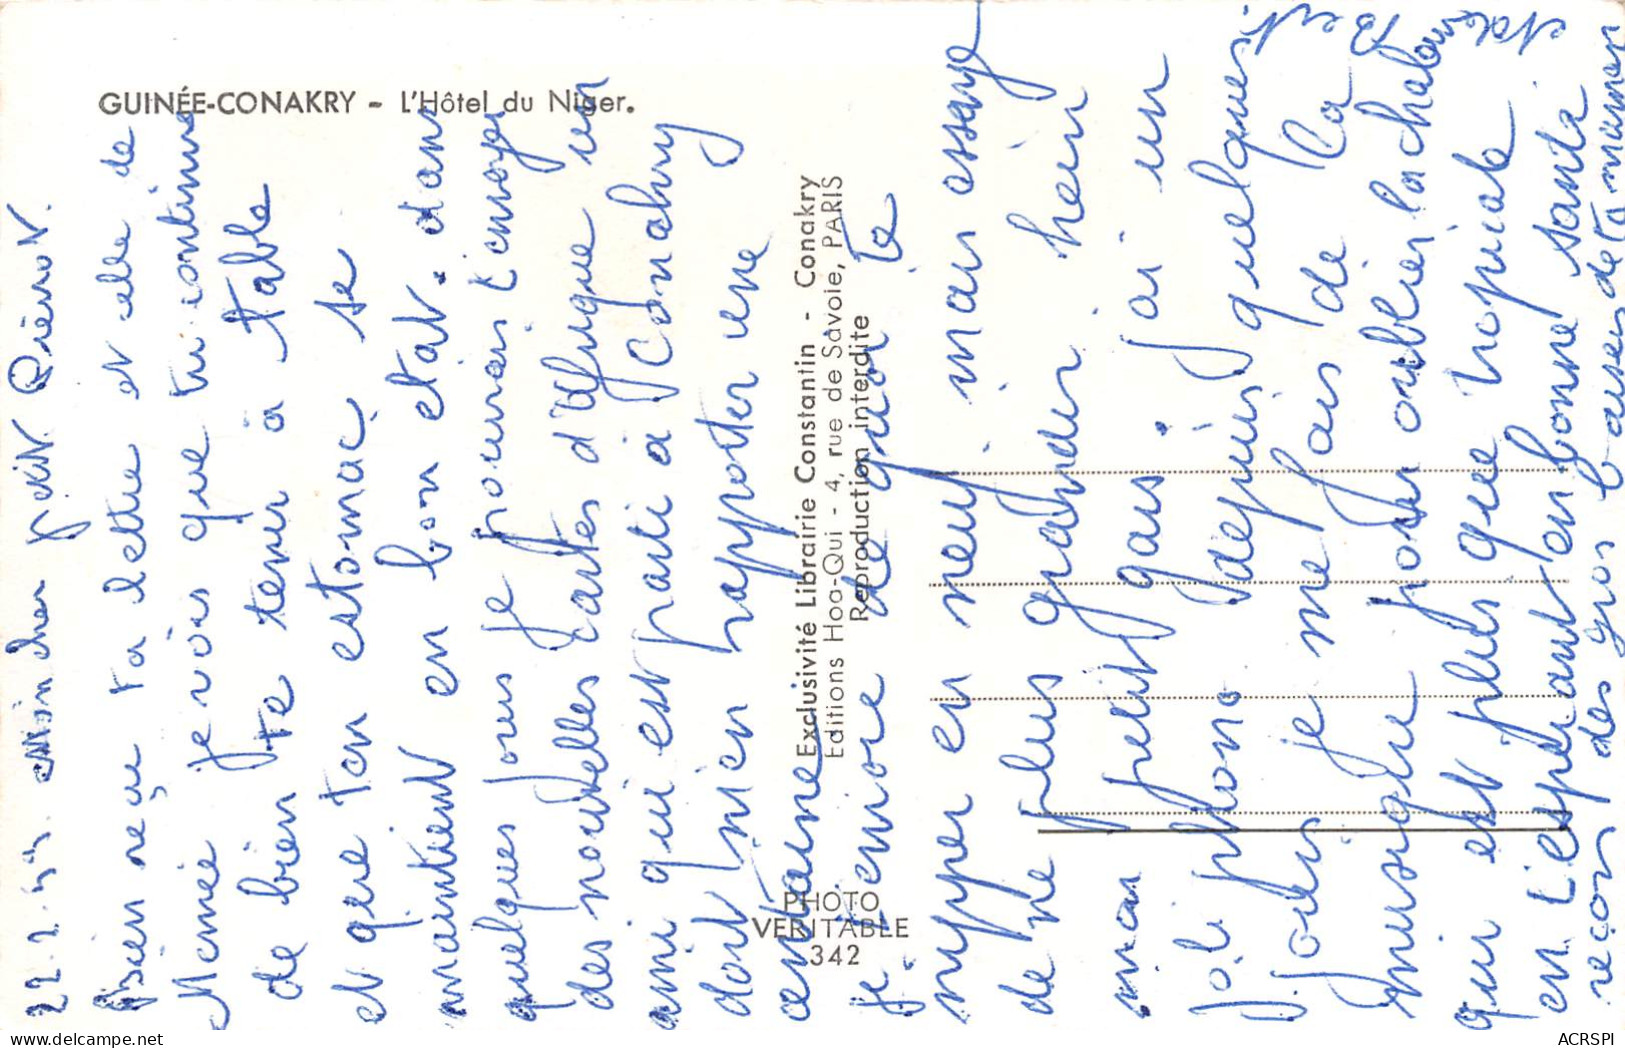 GUINÉE-CONAKRY - L'Hôtel du Niger.
22.2.59. Mon cher petit Pierrot.
Bien reçu ta lettre et elle de
Mémée je vois que tu continue
de bien te tenir à table
et que ton estomac se
maintient en bon état. dans
quelques jours je pourrais t'envoyer
des nouvelles cartes d'Afrique un
ami qui est parti à Conakry
doit m'en rapporter une
centaine
je t'envoie de quoi te
nipper en neuf mais essaye
de ne plus grandir hein
mon petit gars. j'ai un
joli phono depuis quelques
jours je me fais de la
musique pour oublier la chaleur
qui est plus que tropicale
en t'esperant en bonne santé
reçois des gros baisers de ta maman
Exclusivité Librairie Constantin - Conakry
Editions Hoa-Qui - 4, rue de Savoie, PARIS
Reproduction interdite
PHOTO
VERITABLE
342
ACRSPI